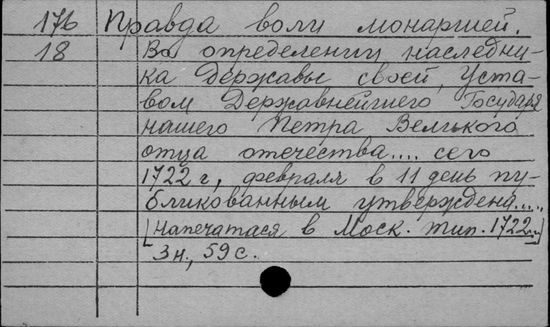 17б Правда воли монаршей.
18 Во определении наследни-
ка державы своей, Уста-
вом Державнейшего Государя
нашего Петра Великого
отца отечества.... сего
1722 г, февраля в 11 день пу-
бликованным утверждена.....
[напечатася в Моск. тип. 1722]
3н., 59с.